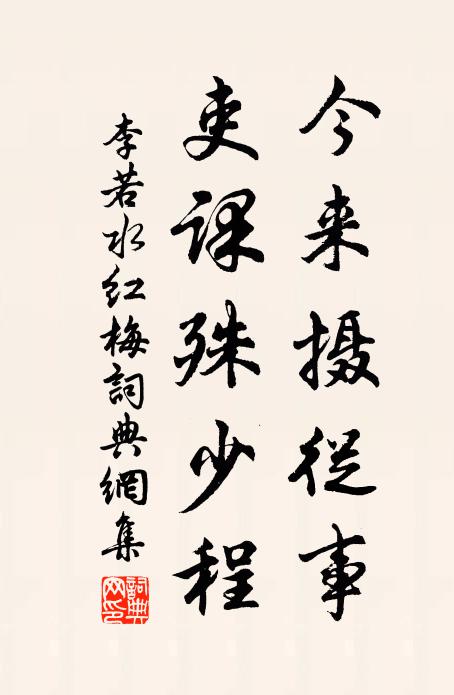 今来摄从事
吏课殊少程
李若水红梅詞典網集
詞典网印